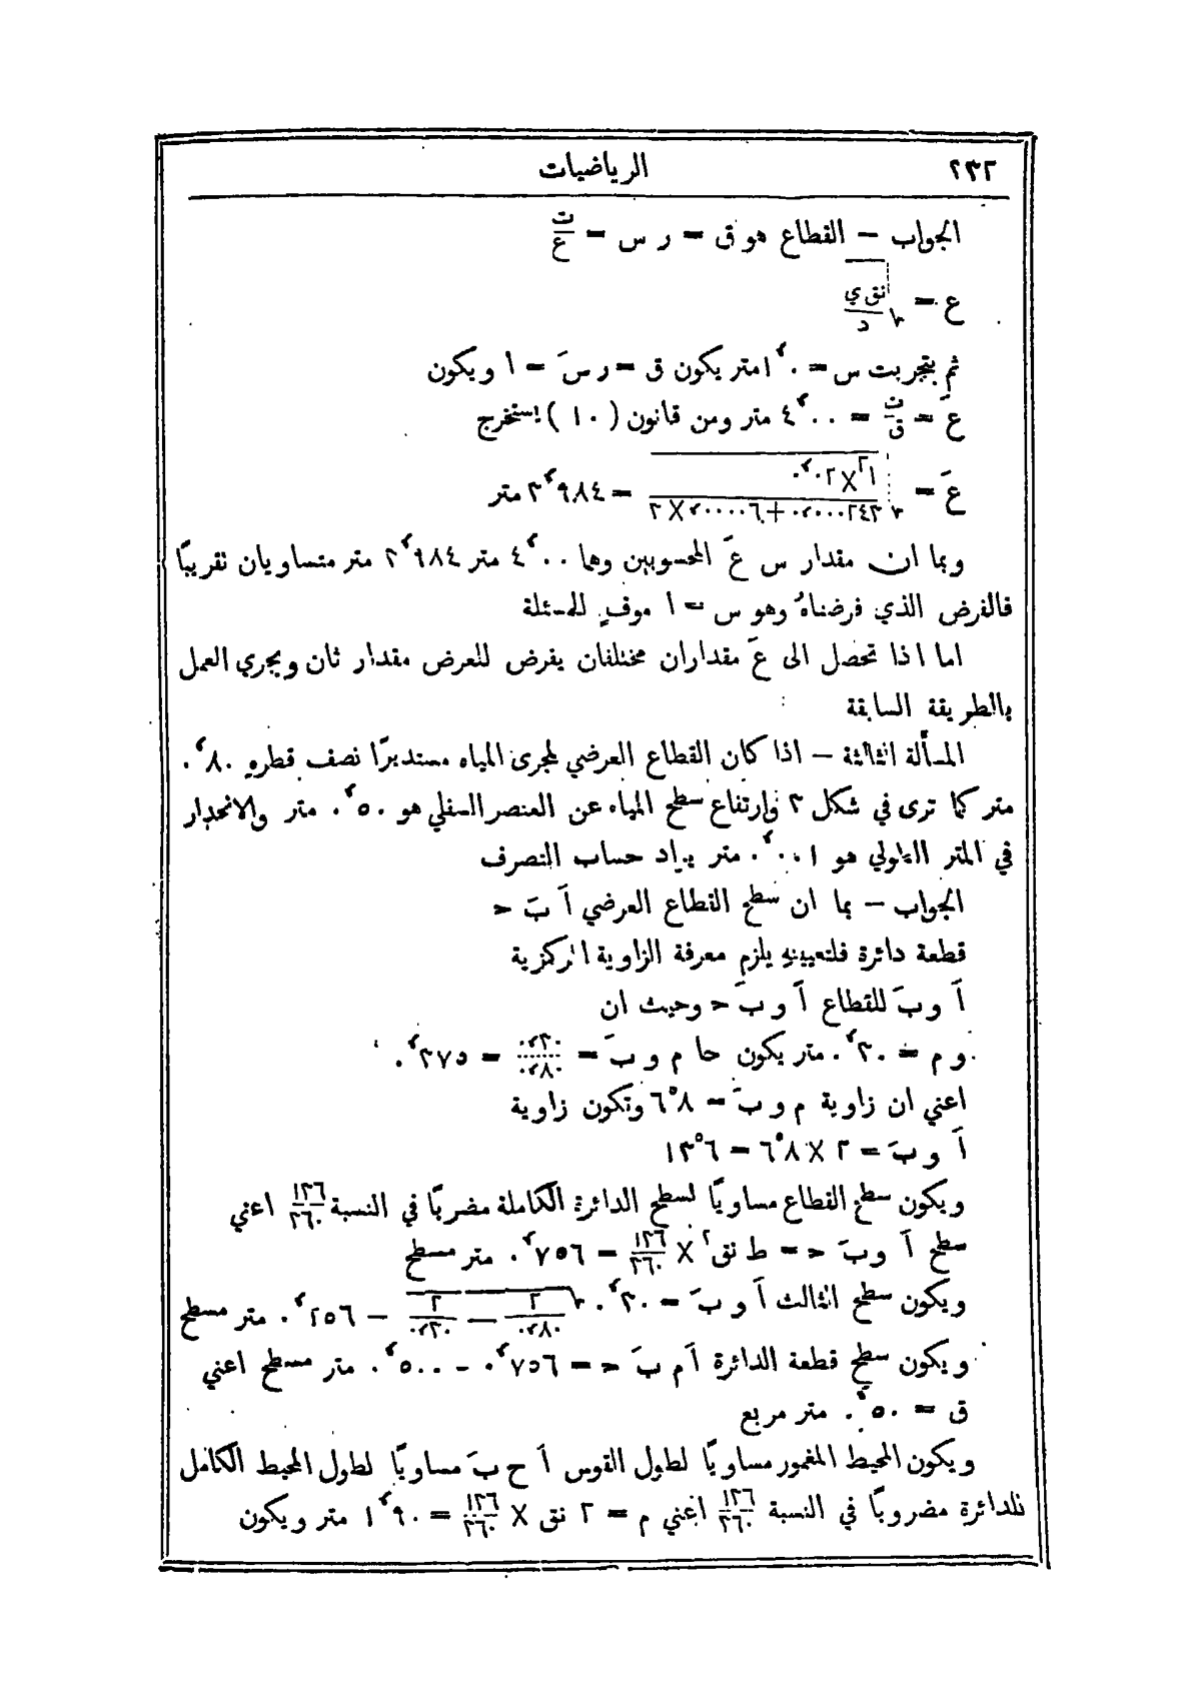 ٢٣٢ الرياضيات
الجواب – القطاع هو ق = ر س = ت/ع
ع = √(نق ي/د)
ثم بتجربت س = ١٠٠ متر يكون ق = ر سَ = ١ ويكون
عَ = ت/ق = ٤٠٠ متر ومن قانون (١٠) يستخرج
عَ = = ٣٩٨٤ متر
وبما ان مقدار س عَ المحسوبين وهما ٤٠٠ متر ٣٩٨٤ متر متساويان نقريبًا
فالفرض الذي فرضناهُ وهو س = ١ موفٍ للمسئلة
اما اذا تحصل الى عَ مقداران مختلفان يفرض للعرض مقدار ثان ويجري العمل
بالطريقة السابقة
المسألة الثالثة – اذا كان القطاع العرضي لمجرى المياه مستديرًا نصف قطره ٠٨٠
متر كما ترى في شكل ٣ وارتفاع سطح المياه عن العنصر السفلي هو ٠٥٠ متر والانحدار
في المتر الطولي هو ٠٠٠١ متر يراد حساب التصرف
الجواب – بما ان سطح القطاع العرضي اَ بَ ح
قطعة دائرة فلتعيينهِ يلزم معرفة الزاوية المركزية
اَ و بَ للقطاع اَ و بَ ح وحيث ان
و م = ٠٣٠ متر يكون حا م و بَ = ٠٣٠/٠٨٠ = ٠٣٧٥
اعني ان زاوية م و بَ = ٦٨° وتكون زاوية
اَ و بَ = ٢ × ٦٨° = ١٣٦°
ويكون سطح القطاع مساويًا لسطح الدائرة الكاملة مضربًا في النسبة ١٣٦/٣٦٠ اعني
سطح اَ و بَ ح = ط نق٢ × ١٣٦/٣٦٠ = ٠٧٥٦ متر مسطح
ويكون سطح المثالث اَ و بَ = ٠٣٠ √(٠٨٠٢ – ٠٣٠٢) = ٠٢٥٦ متر مسطح
ويكون سطح قطعة الدائرة اَ م بَ ح = ٠٧٥٦ = ٠٥٠٠ متر مسطح اعني
ق = ٠٥٠ متر مربع
ويكون المحيط المغمور مساويًا لطول القوس اَ ح بَ مساويًا لطول المحيط الكامل
للدائرة مضروبًا في النسبة ١٣٦/٣٦٠ اعني م = ٢ نق × ١٣٦/٣٦٠ = ١٩٠ متر ويكون